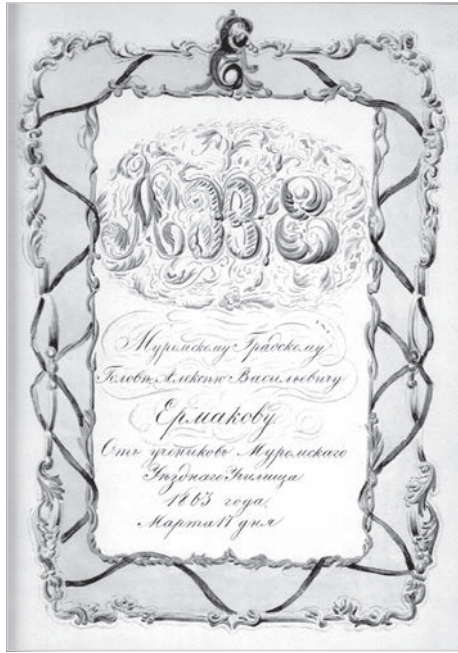 Е
А В Е
Муромскому Градскому
Головѣ Алексѣю Васильевичу
Ермакову
Отъ учениковъ Муромскаго
Уѣзднаго Училища
1863 года
Марта 17 дня